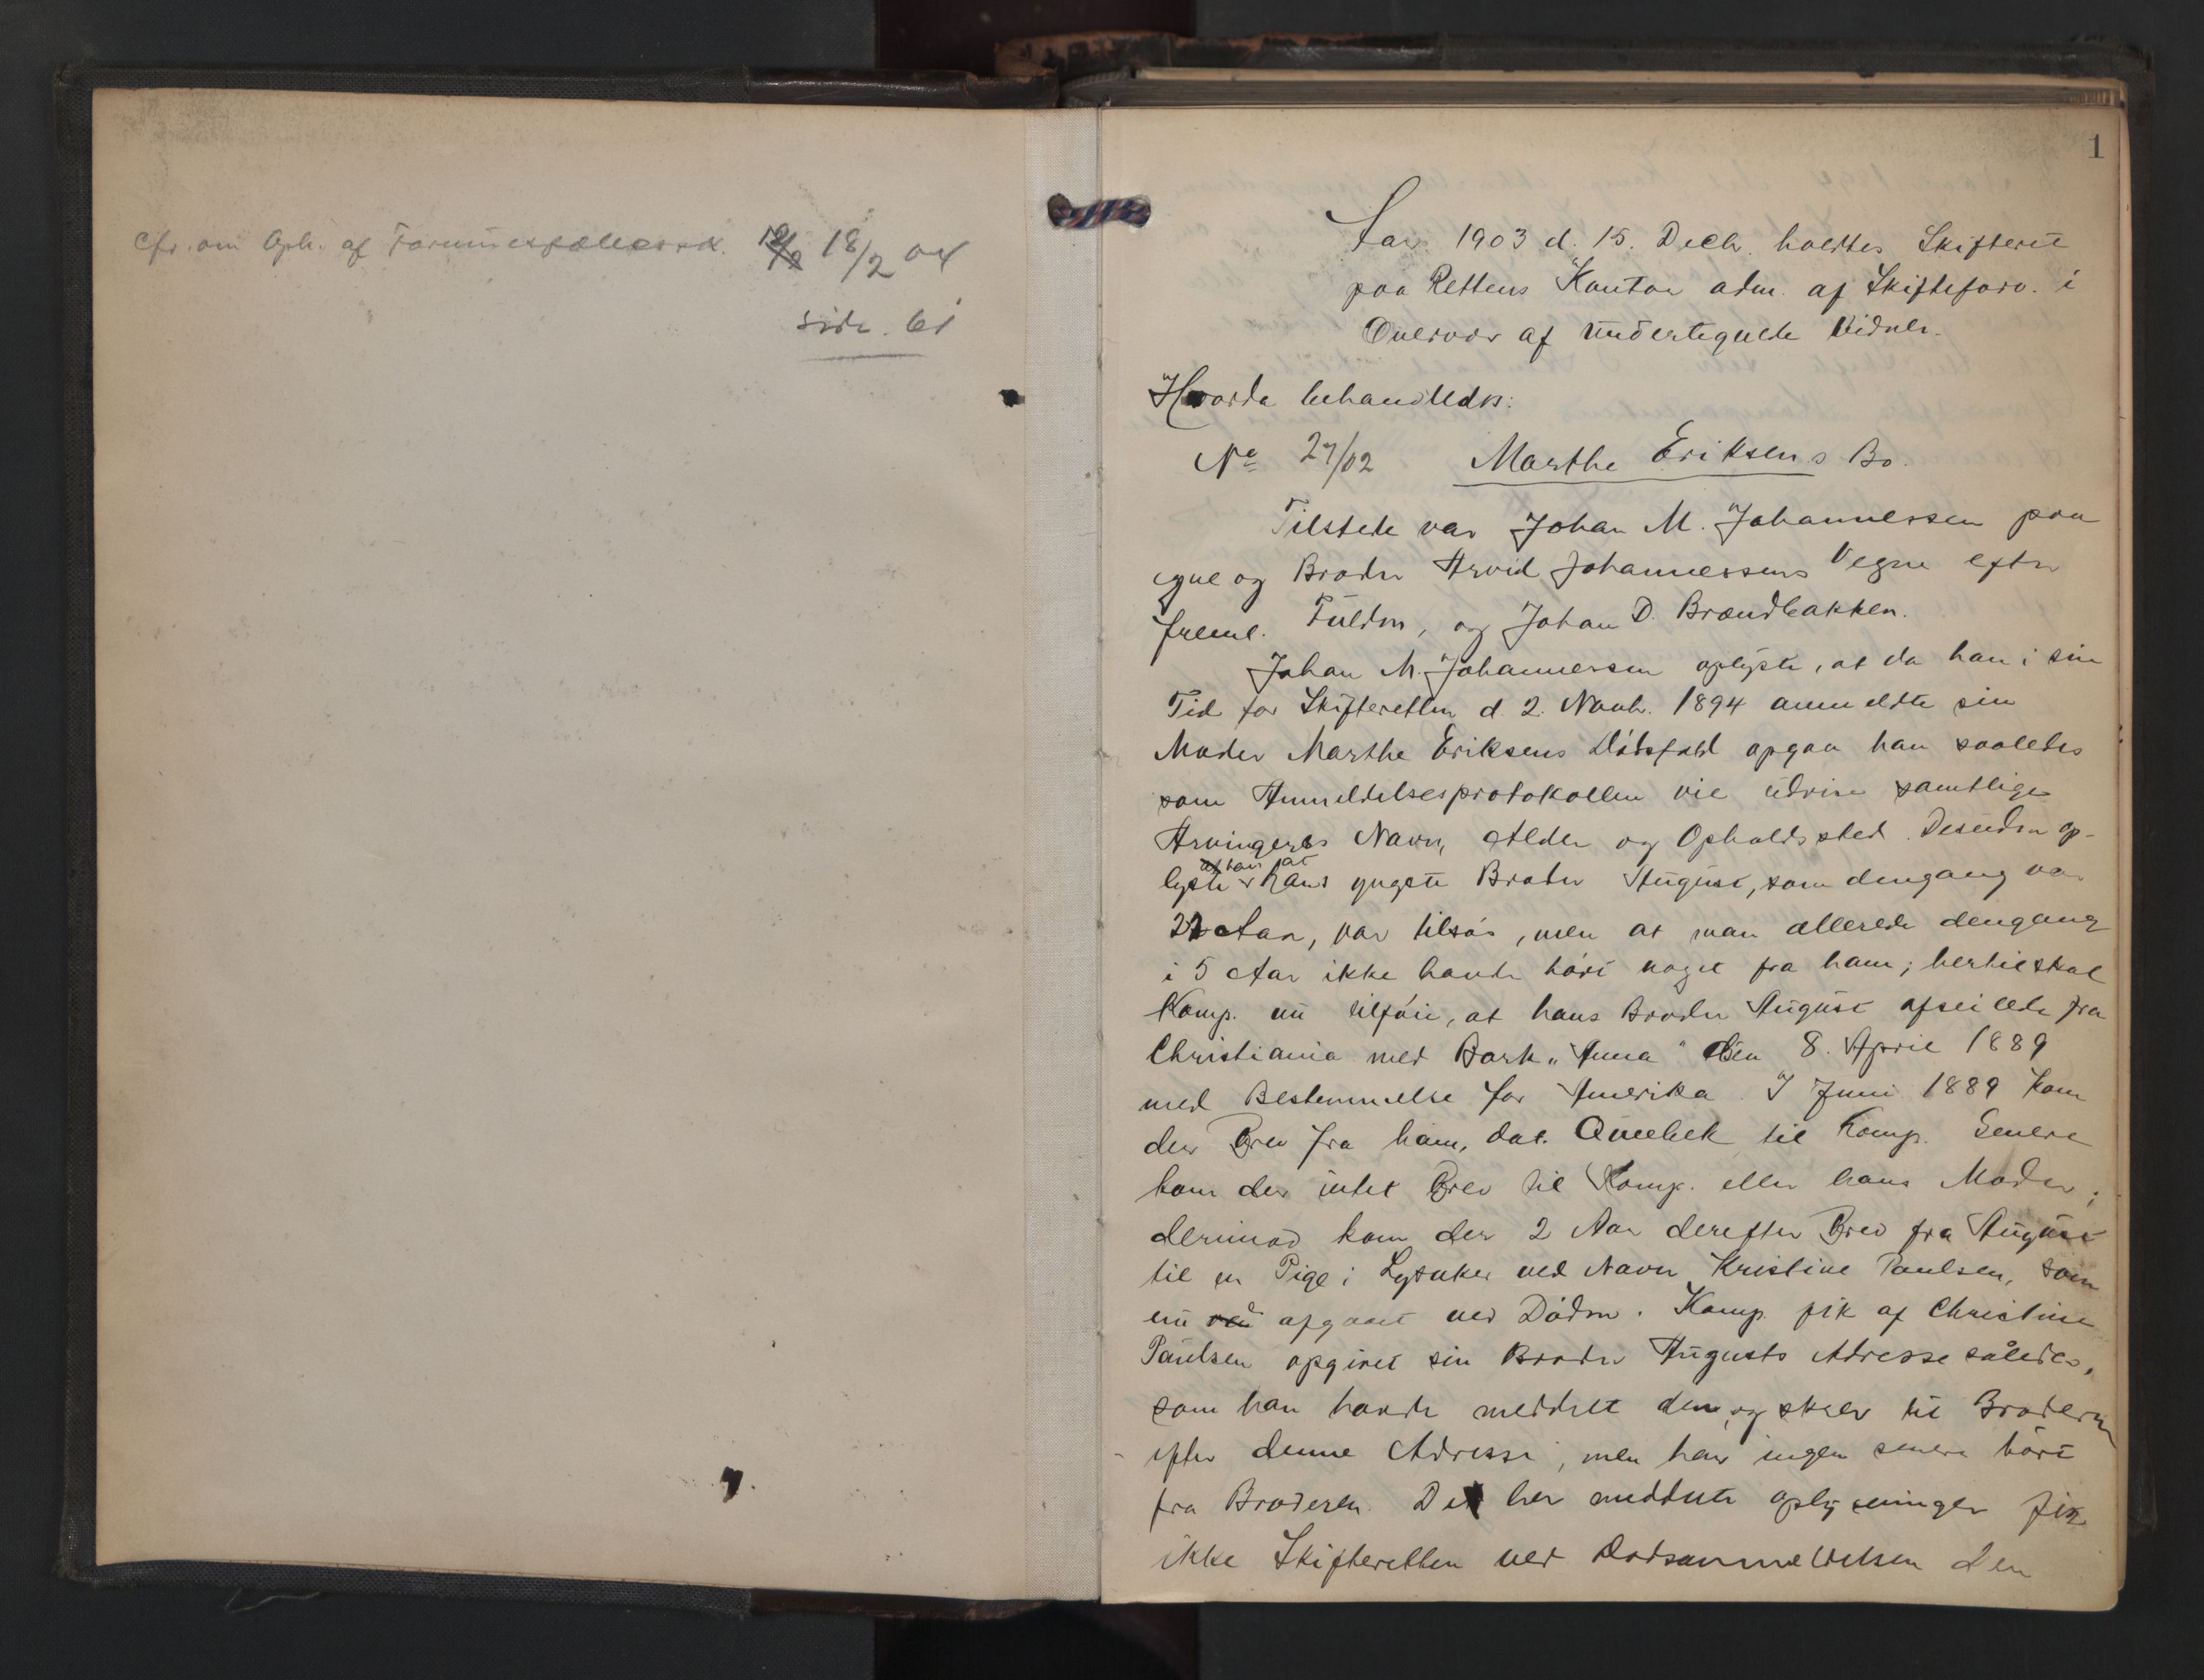 cfr. om Oph. af Formuesfællessk. 18/2 04
side. 61
1
Aar 1903 d. 15. Decb. holdtes Skifteret
paa Rettens Kontor adm. af Skifteforv. i
Overvær af undertegnede Vidner.
Hvorda behandledes:
No 27/02 Marthe Eriksens Bo.
Tilstede var Johan M. Johannessen paa
egne og Broder Arvid Johannessens Vegne efter
freml. Fuldm, og Johan D. Brændbakken.
Johan M. Johannessen oplyste, at da han i sin
Tid for Skifteretten d. 2. Novb. 1894 anmeldte sin
Moder Marthe Eriksens Dödsfald opgav han saaledes
som Anmeldelsesprotokollen vil udvise samtlige
Arvingers Navn, Alder og Opholdssted. Desuden op-
lyste han at hans yngste Broder August, som dengang var
22 Aar, var tilsös, men at man allerede dengang
i 5 Aar ikke havde hört noget fra ham; hertil skal
Komp. nu tilföie, at hans Broder August afseilede fra
Christiania med Bark "Anna" den 8. April 1889
med Bestemmelse for Amerika. I Juni 1889 kom
der Brev fra ham, dat. Quebek til Komp. Senere
kom der intet Brev til Komp. eller hans Moder;
derimod kom der 2 Aar derefter Brev fra August
til en Pige i Lysaker ved Navn Kristine Paulsen, som
nu er afgaaet ved Döden. Komp. fik af Christine
Paulsen opgivet sin Broder Augusts Adresse således,
som han havde meddelt den, og skrev til Broderen
efter denne Adresse, men har ingen senere hört
fra Broderen. De her meddelte oplysninger fik
ikke Skifteretten ved Dodsanmeldelsen den